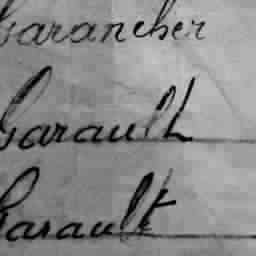 Garancher
Garault
Garault